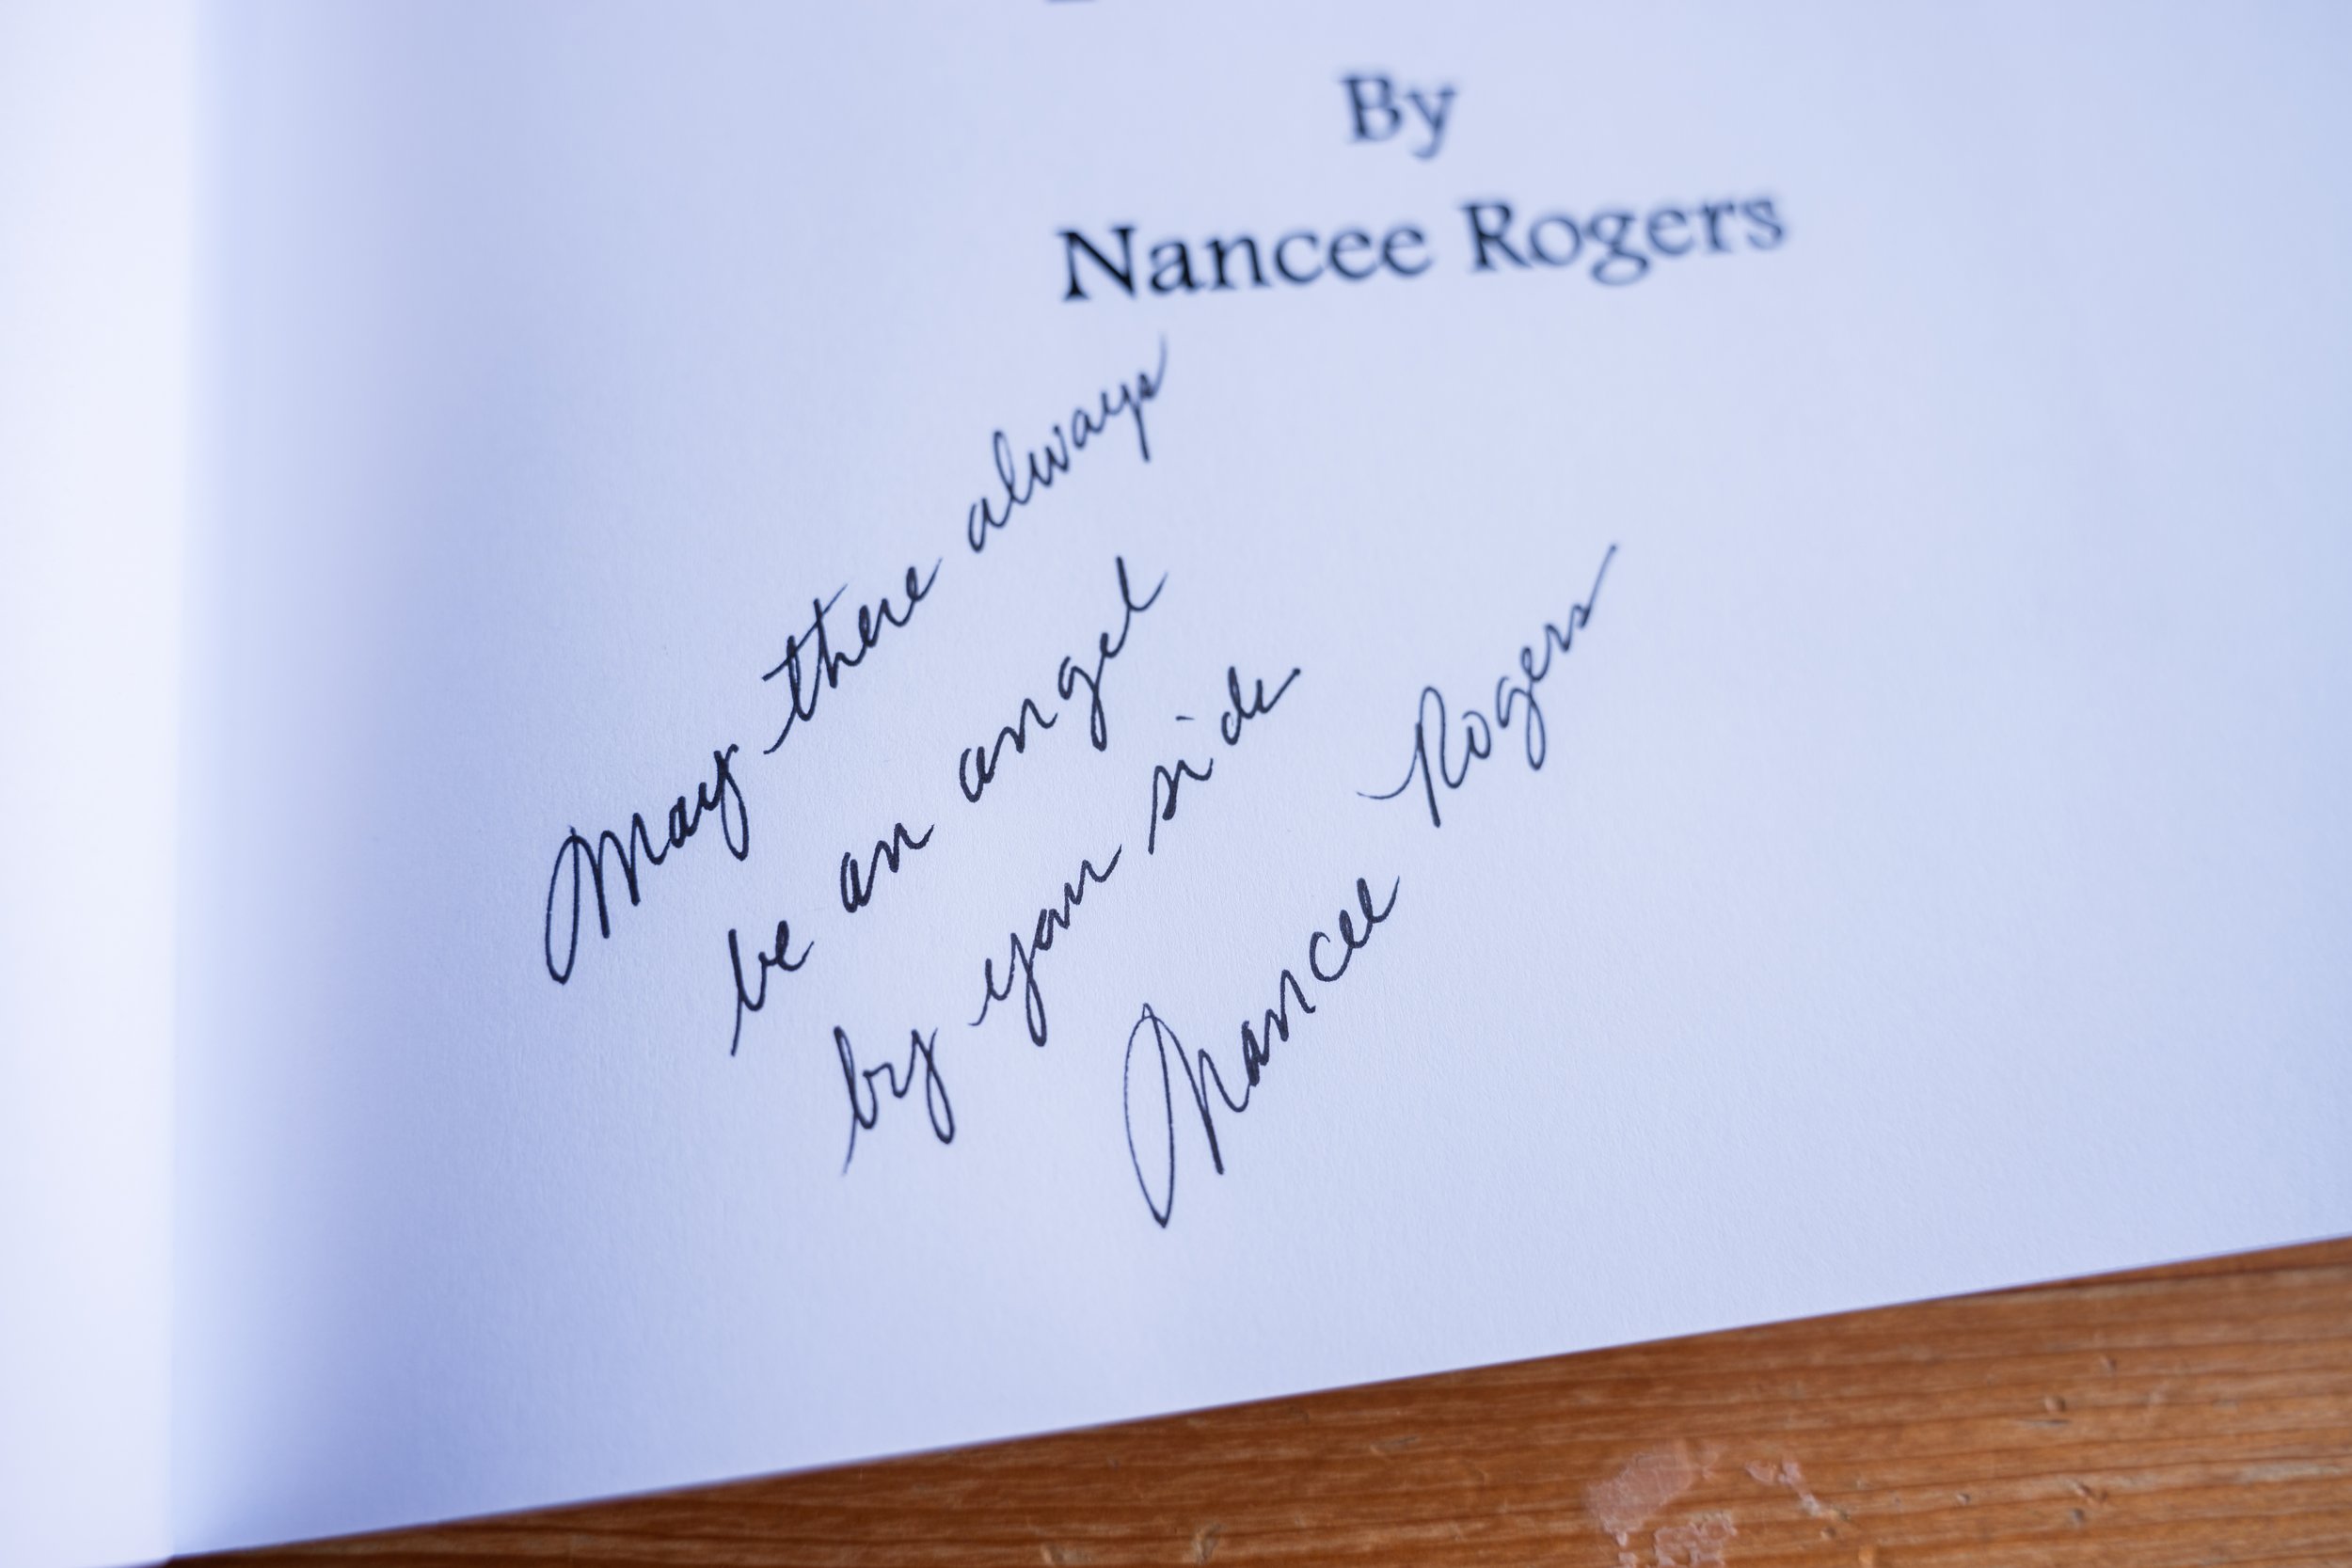 By
Nancee Rogers
May there always
be an angel
by your side
Nancee Rogers